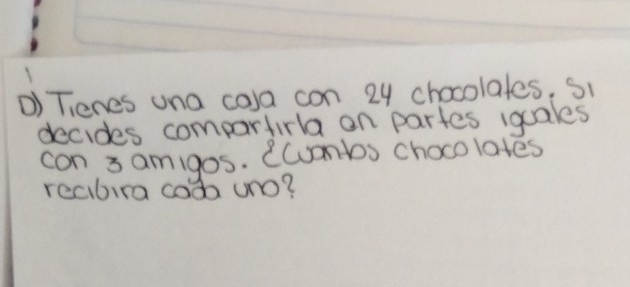 D) Tienes una caja con 24 chocolates. Si
decides compartirla en partes iguales
con 3 amigos. ¿Cuantos chocolates
recibira cada uno?